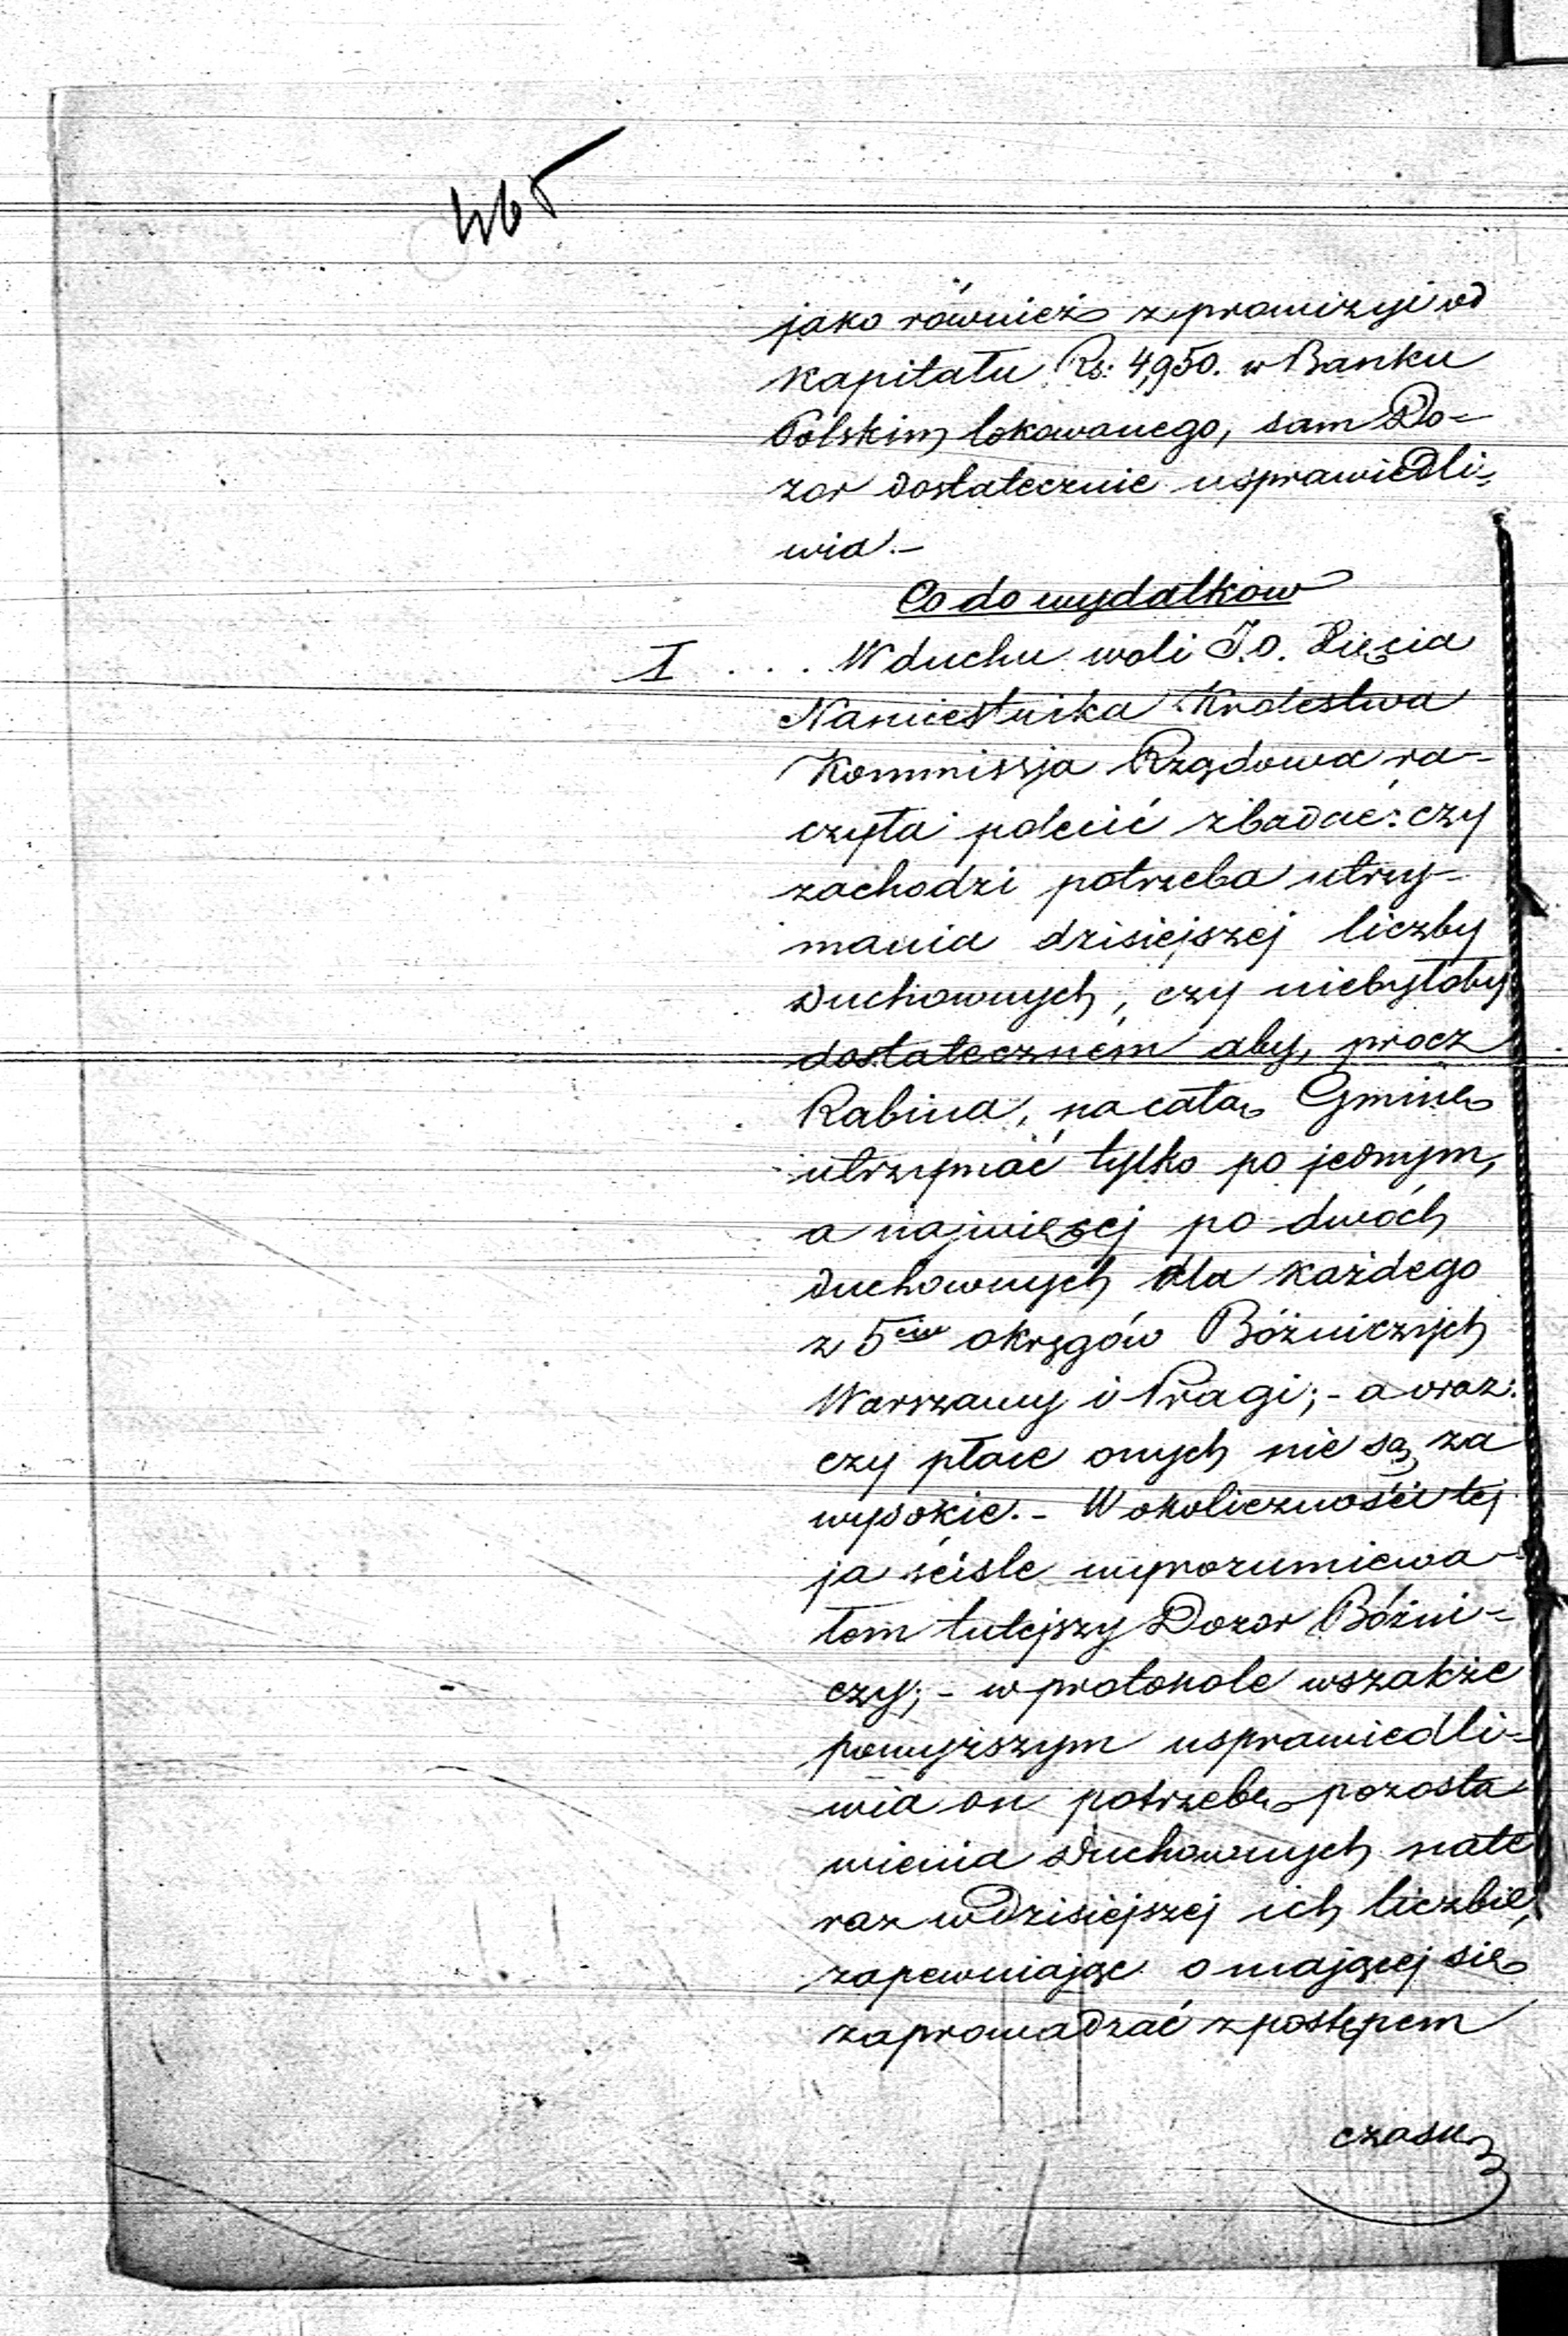 465
jako również z prowizyi od
kapitału Rs: 4,950. w Banku
Polskim lokowanego, sam Do-
zor dostatecznie usprawiedli-
wia.-
Co do wydatkow
I . . . W duchu woli J.O. Xięcia
Namiestnika Krolestwa
Kommissja Rządowa ra-
czyła polecić zbadać: czy
zachodzi potrzeba utrzy-
mania dzisiejszej liczby
Duchownych, czy niebyłoby
dostateczném aby, procz
Rabina, na całą Gminę
utrzymać tylko po jednym,
a najwięcej po dwóch
duchownych dla każdego
z 5ciu okręgów Bóżniczych
Warszawy i Pragi; - a oraz:
czy płace onych nie są za
wysokie. - W okoliczności tej
ja ściśle wyrozumiewa-
łem tutejszy Dozor Bóżni-
czy; - w protokole wszakże
powyższym usprawiedli-
wia on potrzebę pozosta
wienia Duchownych nate
raz w dzisiejszej ich liczbie,
zapewniając o mającej się
zaprowadzać z postępem
czasu